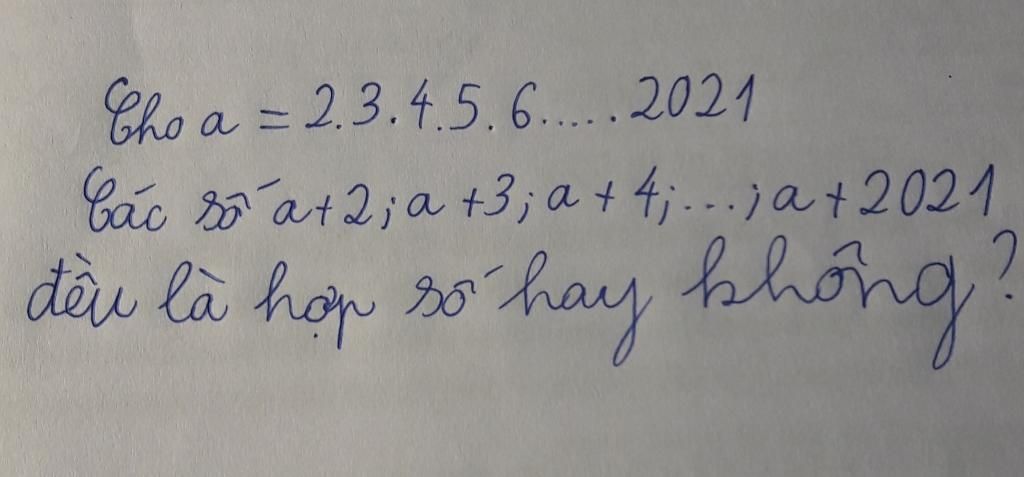 Cho a = 2.3.4.5.6.....2021
Các số a+2; a+3; a+4;...; a+2021
đều là hợp số hay không?